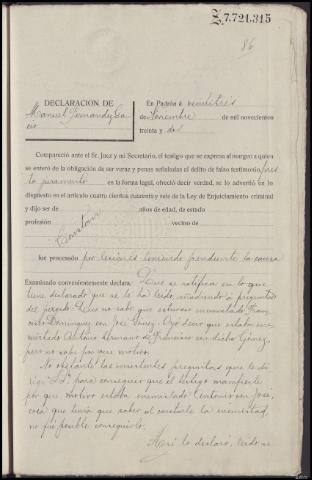 Z.7.721.315
86
DECLARACION DE
Manuel Fernandez Ga
cio
En Padrón á veintitrés
de Noviembre de mil novecientos
treinta y dos
Compareció ante el Sr. Juez y mi Secretario, el testigo que se expresa al margen a quien
se enteró de la obligación de ser veraz y penas señaladas al delito de falso testimonio, pres
tó juramento en la forma legal, ofreció decir verdad, se le advertió en lo
dispuesto en el artículo cuatro cientos cuarenta y seis de la Ley de Enjuiciamiento criminal
y dijo ser de años de edad, de estado
profesión vecino de
Constan
fue procesado por lesiones teniendo pendiente la causa
Examinado convenientemente declara: Que se ratifica en lo que
tiene declarado que se le ha leido, añadiendo a preguntas
del juzgado: Que no sabe que estuviese enemistado Fran
cisco Dominguez con José Gomez. Oyó decir que estaba ene
mistado Antonio hermano de Francisco con dicho Gómez,
pero no sabe por que motivo.
No obstante las insistentes preguntas que le di
rige S.Sª para conseguir que el testigo manifieste
por que motivo estaba enemistado Antonio con José,
cosa que tenía que saber al constarle la enemistad,
no fué posible conseguirlo.
Así lo declaró, leido se